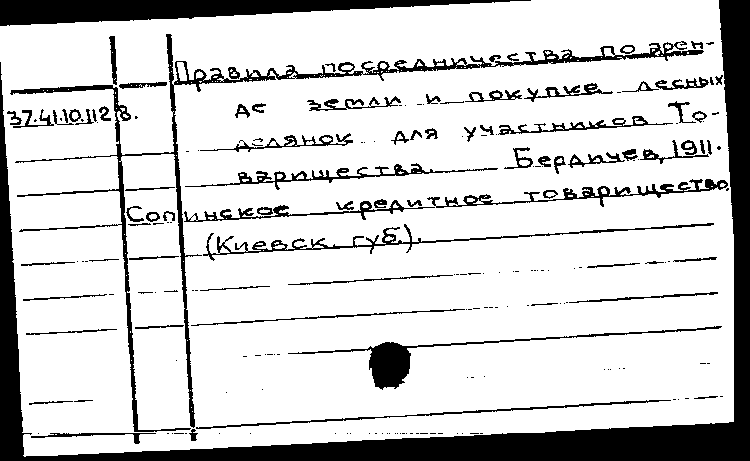 Правила посредничества по арен-
37.41.10.112 8. де земли и покупке лесных
делянок для участников То-
варищества. Бердичев, 1911.
Сопинское кредитное товарищество
(Киевск. губ.).